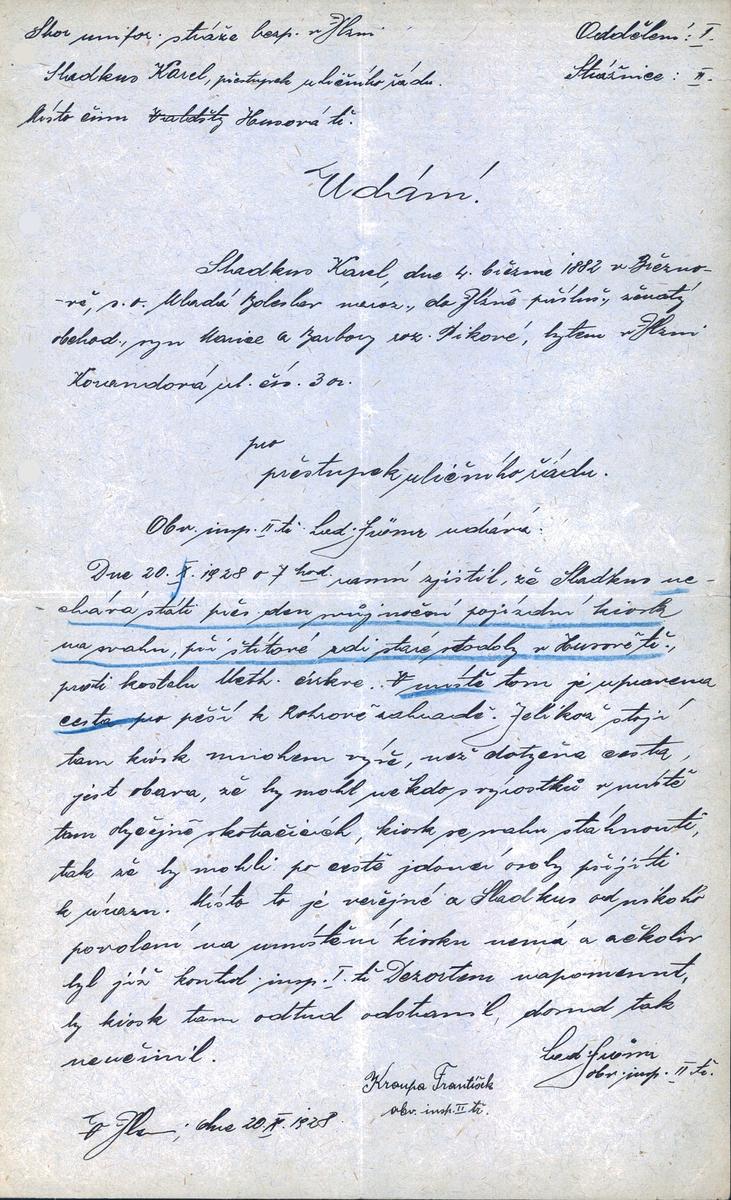 Sbor unifor. stráže bezp. v Plzni
Oddělení: I.
Sladkus Karel, přestupek uličního řádu.
Strážnice: II.
Místo činu Husová tř.
Udání!
Sladkus Karel, dne 4. března 1882 v Březno-
-vě, s. o. Mladá Boleslav naroz., do Plzně přísluš., ženatý
obchod., syn Marie a Barbory roz. Pikové, bytem v Plzni
Korandová ul. čís. 3 or.
pro
přestupek uličního řádu.
Obv. insp. II. tř. Lad. udává:
Dne 20. X. 1928 o 7 hod. ranní zjistil, že Sladkus ne-
chává státi přes den svůj noční pojízdní kiosk
na svahu, při štítové zdi staré stodoly v Husově tř.,
proti kostelu Meth. církve. V místě tom je upravena
cesta pro pěší k zahradě. Jelikož stojí
tam kiosk mnohem výše, než dotyčna cesta,
jest obava, že by mohl někdo s výrostků v místě
tom obyčejně skotačících, kiosk se svahu stáhnouti,
tak že by mohli po cestě jdoucí osoby přijíti
k úrazu. Místo to je veřejné a Sladkus od nikoho
povolení na umístění kiosku nemá a ačkoliv
byl již kontrol. insp. I. tř. Dezortem napomenut,
by kiosk tam odtud odstranil, dosud tak
neučinil.
Lad.
obv. insp. II. tř.
Kroupa František
obv. insp. II tř.
V Plzni, dne 20. X. 1928.